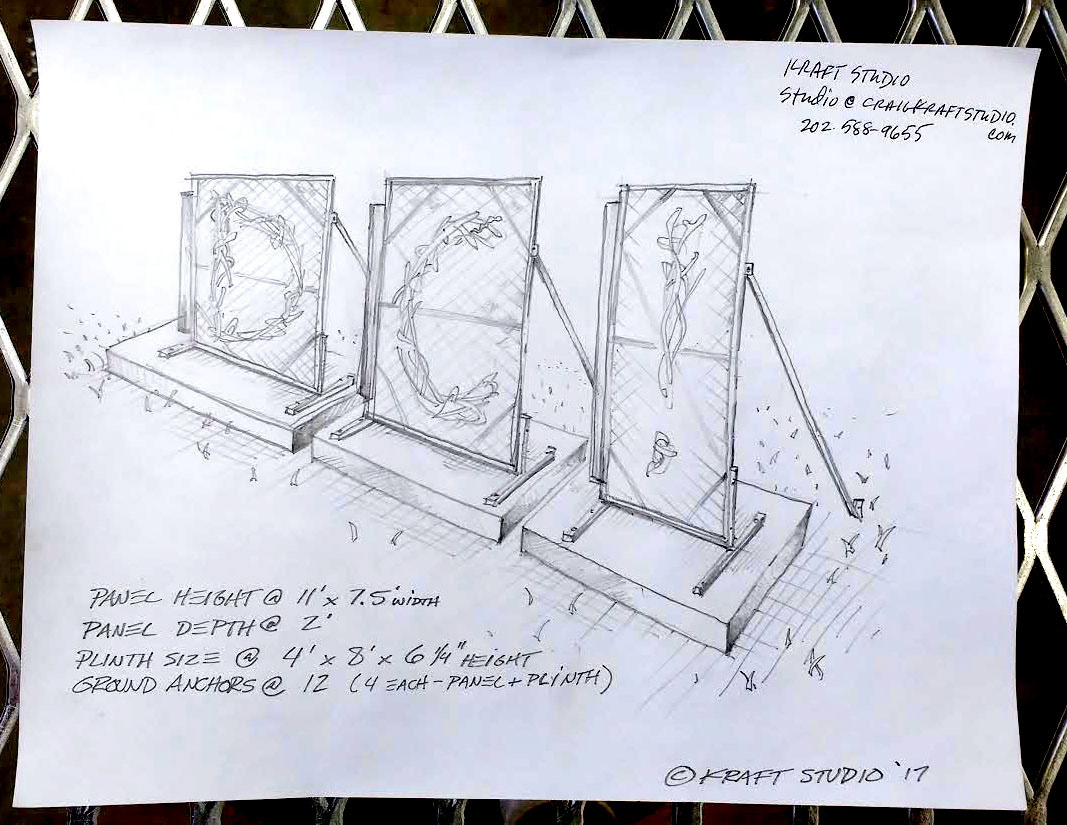 KRAFT STUDIO
Studio@CRAIGKRAFTSTUDIO.
com
202.588-9655
PANEL HEIGHT @ 11' x 7.5' WIDTH
PANEL DEPTH @ 2'
PLINTH SIZE @ 4' x 8' x 6 1/4" HEIGHT
GROUND ANCHORS @ 12 (4 EACH - PANEL + PLINTH)
© KRAFT STUDIO '17